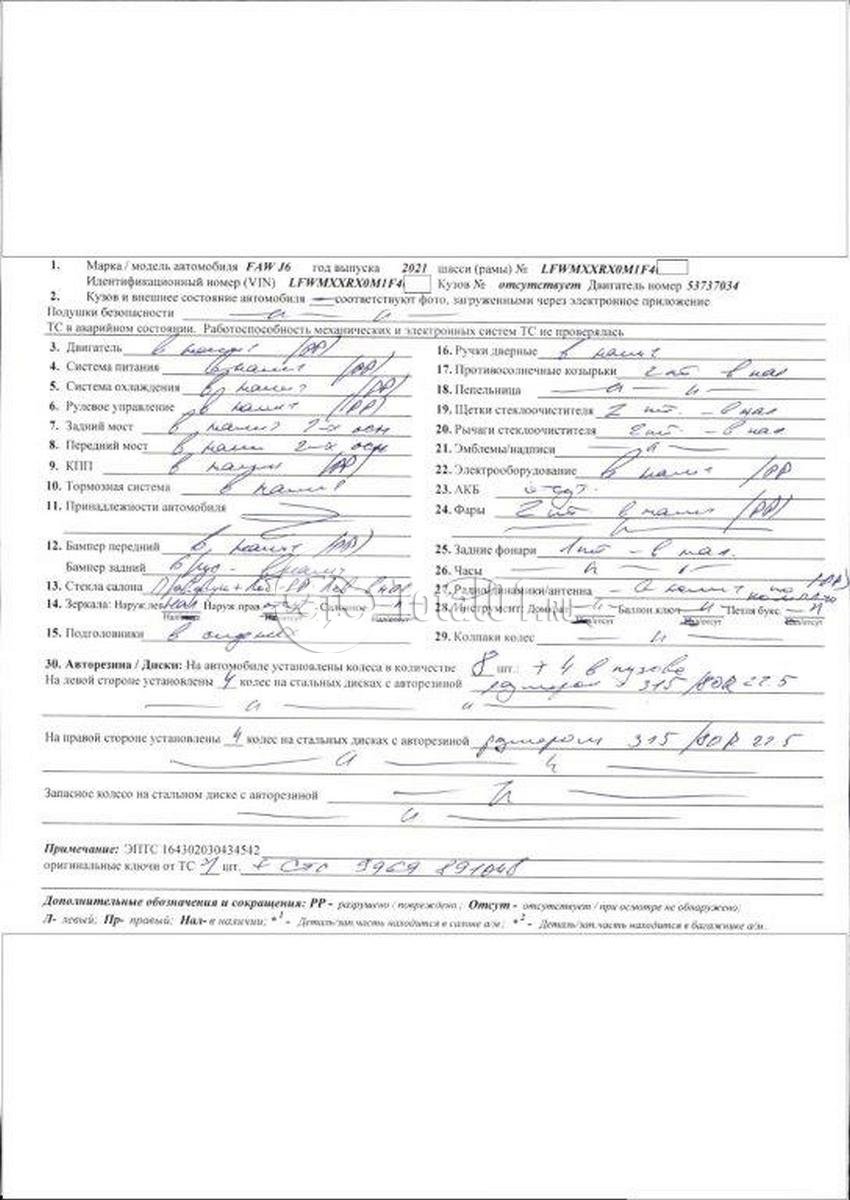 1. Марка / модель автомобиля FAW J6 год выпуска 2021 шасси (рамы) № LFWMXXRX0M1F4
Идентификационный номер (VIN) LFWMXXRX0M1F4 Кузов № отсутствует Двигатель номер 53737034
2. Кузов и внешнее состояние автомобиля соответствуют фото, загруженными через электронное приложение
Подушки безопасности
ТС в аварийном состоянии. Работоспособность механических и электронных систем ТС не проверялась
3. Двигатель в налич (РР)
4. Система питания в налич (РР)
5. Система охлаждения в налич (РР)
6. Рулевое управление в налич (РР)
7. Задний мост в налич 2-х осн
8. Передний мост в налич 2-х осн
9. КПП в налич (РР)
10. Тормозная система в налич
11. Принадлежности автомобиля
12. Бампер передний в налич (РР)
Бампер задний
13. Стекла салона
14. Зеркала: Наруж.лев Наруж прав Салонное
15. Подголовники в сиденьях
16. Ручки дверные в налич
17. Противосолнечные козырьки 2 шт. в нал
18. Пепельница
19. Щетки стеклоочистителя 2 шт. - в нал
20. Рычаги стеклоочистителя 2 шт. - в нал
21. Эмблемы/надписи
22. Электрооборудование в налич (РР
23. АКБ отсут.
24. Фары 2 шт в налич (РР)
25. Задние фонари 1 шт - в нал.
26. Часы
27. Радио/динамики/антенна
28. Инструмент: Домкрат Баллон.ключ Петля букс.
29. Колпаки колес
total01.ru
30. Авторезина / Диски: На автомобиле установлены колеса в количестве 8 шт. + 4 в кузове
На левой стороне установлены 4 колес на стальных дисках с авторезиной размером 315/80R 22.5
На правой стороне установлены 4 колес на стальных дисках с авторезиной размером 315/80R 22.5
Запасное колесо на стальном диске с авторезиной
Примечание: ЭПТС 164302030434542
оригинальные ключи от ТС 1 шт. + СТС 9969 891048
Дополнительные обозначения и сокращения: РР - разрушено / повреждено; Отсут - отсутствует / при осмотре не обнаружено;
Л- левый; Пр- правый; Нал- в наличии; *1 - Деталь/зап.часть находится в салоне а/м; *2 - Деталь/зап.часть находится в багажнике а/м.